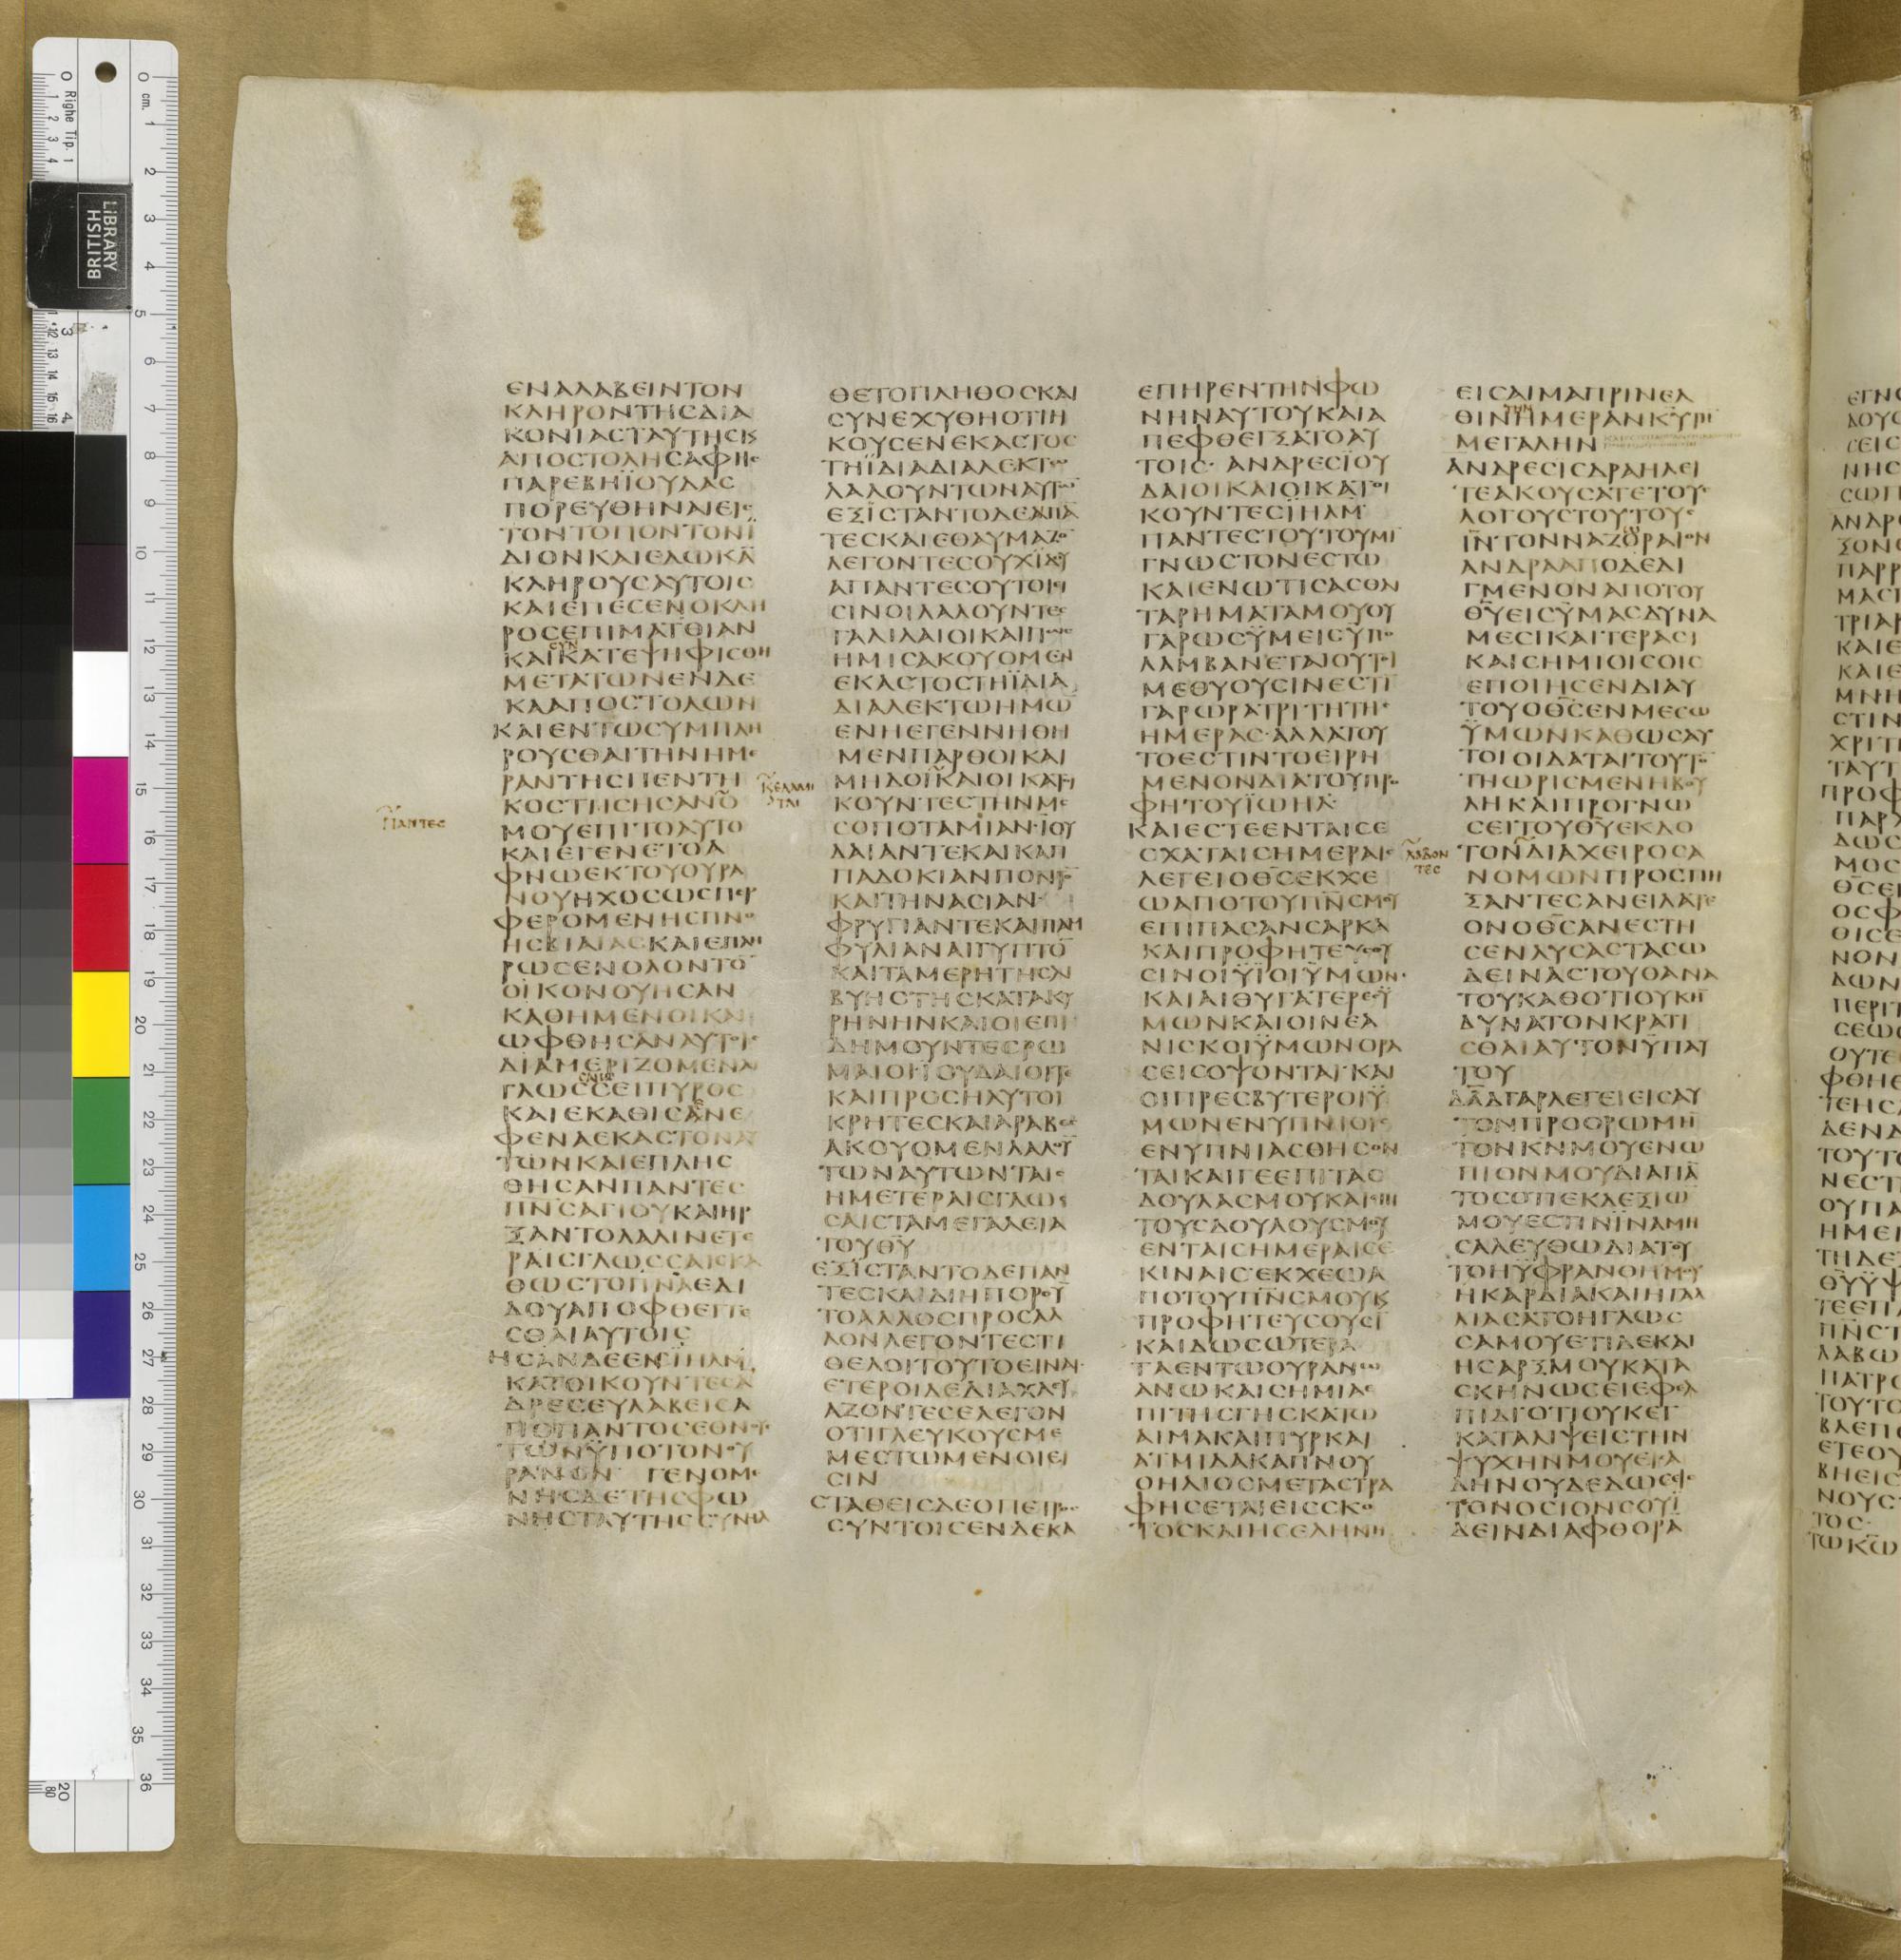 ΕΝΑΛΑΒΕΙΝΤΟΝ
ΚΛΗΡΟΝΤΗϹΔΙΑ
ΚΟΝΙΑϹΤΑΥΤΗϹΚ
ΑΠΟϹΤΟΛΗϹΑΦΗϹ
ΠΑΡΕΒΗΪΟΥΔΑϹ
ΠΟΡΕΥΘΗΝΑΙΕΙϹ
ΤΟΝΤΟΠΟΝΤΟΝΪ
ΔΙΟΝΚΑΙΕΔΩΚΑ̅
ΚΛΗΡΟΥϹΑΥΤΟΙϹ
ΚΑΙΕΠΕϹΕΝΟΚΛΗ
ΡΟϹΕΠΙΜΑΤΘΙΑΝ
ϹΥΝ
ΚΑΙΚΑΤΕΨΗΦΙϹΘΗ
ΜΕΤΑΤΩΝΕΝΔΕ
ΚΑΑΠΟϹΤΟΛΩΝ
ΚΑΙΕΝΤΩϹΥΜΠΛΗ
ΡΟΥϹΘΑΙΤΗΝΗΜΕ
ΡΑΝΤΗϹΠΕΝΤΗ
ΚΟϹΤΗϹΗϹΑΝΟ̅
ΠΑΝΤΕϹ
ΜΟΥΕΠΙΤΟΑΥΤΟ
ΚΑΙΕΓΕΝΕΤΟΑ
ΦΝΩΕΚΤΟΥΟΥΡΑ
ΝΟΥΗΧΟϹΩϹΠΕΡ
ΦΕΡΟΜΕΝΗϹΠΝΟ
ΗϹΒΙΑΙΑϹΚΑΙΕΠΛΗ
ΡΩϹΕΝΟΛΟΝΤΟ̅
ΟΙΚΟΝΟΥΗϹΑΝ
ΚΑΘΗΜΕΝΟΙΚΑΙ
ΩΦΘΗϹΑΝΑΥΤΟΙϹ
ΔΙΑΜΕΡΙΖΟΜΕΝΑΙ
ϹΑΙΩϹ
ΓΛΩϹϹΕΙΠΥΡΟϹ
ΚΑΙΕΚΑΘΙϹΑΝΕ
ΦΕΝΑΕΚΑϹΤΟΝΑΥ
ΤΩΝΚΑΙΕΠΛΗϹ
ΘΗϹΑΝΠΑΝΤΕϹ
ΠΝ̅ϹΑΓΙΟΥΚΑΙΗΡ
ΞΑΝΤΟΛΑΛΙΝΕΤΕ
ΡΑΙϹΓΛΩϹϹΑΙϹΚΑ
ΘΩϹΤΟΠΝ̅ΑΕΔΙ
ΔΟΥΑΠΟΦΘΕΓΓΕ
ϹΘΑΙΑΥΤΟΙϹ
ΗϹΑΝΔΕΕΝΪΗΛΜ
ΚΑΤΟΙΚΟΥΝΤΕϹΑ
ΔΡΕϹΕΥΛΑΒΕΙϹΑ
ΠΟΠΑΝΤΟϹΕΘΝΟΥϹ
ΤΩΝΫΠΟΤΟΝΟΥ
ΡΑΝΟΝ ΓΕΝΟΜΕ
ΝΗϹΔΕΤΗϹΦΩ
ΝΗϹΤΑΥΤΗϹϹΥΝΗΛ
ΘΕΤΟΠΛΗΘΟϹΚΑΙ
ϹΥΝΕΧΥΘΗΟΤΙΗ
ΚΟΥϹΕΝΕΚΑϹΤΟϹ
ΤΗΪΔΙΑΔΙΑΛΕΚΤΩ
ΛΑΛΟΥΝΤΩΝΑΥΤΩ̅
ΕΞΙϹΤΑΝΤΟΔΕΑΠΑ̅
ΤΕϹΚΑΙΕΘΑΥΜΑΖΟ̅
ΛΕΓΟΝΤΕϹΟΥΧΪΔΟΥ
ΑΠΑΝΤΕϹΟΥΤΟΙΕΙ
ϹΙΝΟΙΛΑΛΟΥΝΤΕϹ
ΓΑΛΙΛΑΙΟΙΚΑΙΠΩϹ
ΗΜΙϹΑΚΟΥΟΜΕΝ
ΕΚΑϹΤΟϹΤΗΪΔΙΑ
ΔΙΑΛΕΚΤΩΗΜΩ̅
ΕΝΗΕΓΕΝΝΗΘΗ
ΜΕΝΠΑΡΘΟΙΚΑΙ
ΜΗΔΟΙΚΑΙΟΙΚΑΤΟΙ
ΕΛΑΜΙ
ΤΑΙ
ΚΟΥΝΤΕϹΤΗΝΜΕ
ϹΟΠΟΤΑΜΙΑΝ·ΪΟΥ
ΔΑΙΑΝΤΕΚΑΙΚΑΠ
ΠΑΔΟΚΙΑΝΠΟΝΤΟ̅
ΚΑΙΤΗΝΑϹΙΑΝ
ΦΡΥΓΙΑΝΤΕΚΑΙΠΑΜ
ΦΥΛΙΑΝΑΙΓΥΠΤΟ̅
ΚΑΙΤΑΜΕΡΗΤΗϹΛΙ
ΒΥΗϹΤΗϹΚΑΤΑΚΥ
ΡΗΝΗΝΚΑΙΟΙΕΠΙ
ΔΗΜΟΥΝΤΕϹΡΩ
ΜΑΙΟΙΪΟΥΔΑΙΟΙΤΕ
ΚΑΙΠΡΟϹΗΛΥΤΟΙ
ΚΡΗΤΕϹΚΑΙΑΡΑΒΕϹ
ΑΚΟΥΟΜΕΝΛΑΛΟΥ̅
ΤΩΝΑΥΤΩΝΤΑΙϹ
ΗΜΕΤΕΡΑΙϹΓΛΩϹ
ϹΑΙϹΤΑΜΕΓΑΛΕΙΑ
ΤΟΥΘΥ̅
ΕΞΙϹΤΑΝΤΟΔΕΠΑΝ
ΤΕϹΚΑΙΔΙΗΠΟΡΟΥ̅
ΤΟΑΛΛΟϹΠΡΟϹΑΛ
ΛΟΝΛΕΓΟΝΤΕϹΤΙ
ΘΕΛΟΙΤΟΥΤΟΕΙΝΑΙ
ΕΤΕΡΟΙΔΕΔΙΑΧΛΕΥ
ΑΖΟΝΤΕϹΕΛΕΓΟΝ
ΟΤΙΓΛΕΥΚΟΥϹΜΕ
ΜΕϹΤΩΜΕΝΟΙΕΙ
ϹΙΝ
ϹΤΑΘΕΙϹΔΕΟΠΕΤΡΟϹ
ϹΥΝΤΟΙϹΕΝΔΕΚΑ
ΕΠΗΡΕΝΤΗΝΦΩ
ΝΗΝΑΥΤΟΥΚΑΙΑ
ΠΕΦΘΕΓΞΑΤΟΑΥ
ΤΟΙϹ· ΑΝΔΡΕϹΪΟΥ
ΔΑΙΟΙΚΑΙΟΙΚΑΤΟΙ
ΚΟΥΝΤΕϹΪΗΛΜ
ΠΑΝΤΕϹΤΟΥΤΟΥΜΙ
ΓΝΩϹΤΟΝΕϹΤΩ
ΚΑΙΕΝΩΤΙϹΑϹΘΑΙ
ΤΑΡΗΜΑΤΑΜΟΥΟΥ
ΓΑΡΩϹΫΜΕΙϹΫΠΟ
ΛΑΜΒΑΝΕΤΑΙΟΥΤΟΙ
ΜΕΘΥΟΥϹΙΝΕϹΤΙ
ΓΑΡΩΡΑΤΡΙΤΗΤΗϹ
ΗΜΕΡΑϹ·ΑΛΛΑΤΟΥ
ΤΟΕϹΤΙΝΤΟΕΙΡΗ
ΜΕΝΟΝΔΙΑΤΟΥΠΡΟ
ΦΗΤΟΥΪΩΗΛ·
ΚΑΙΕϹΤΕΕΝΤΑΙϹΕ
ϹΧΑΤΑΙϹΗΜΕΡΑΙϹ
ΛΕΓΕΙΟΘϹ̅ΕΚΧΕ
ΩΑΠΟΤΟΥΠΝ̅ϹΜΟΥ
ΕΠΙΠΑϹΑΝϹΑΡΚΑ
ΚΑΙΠΡΟΦΗΤΕΥϹΟΥ
ϹΙΝΟΙΫΪΟΙΫΜΩΝ·
ΚΑΙΑΙΘΥΓΑΤΕΡΕϹΫ
ΜΩΝΚΑΙΟΙΝΕΑ
ΝΙϹΚΟΙΫΜΩΝΟΡΑ
ϹΕΙϹΟΨΟΝΤΑΙ·ΚΑΙ
ΟΙΠΡΕϹΒΥΤΕΡΟΙΫ
ΜΩΝΕΝΥΠΝΙΟΙϹ
ΕΝΥΠΝΙΑϹΘΗϹΟΝ
ΤΑΙΚΑΙΓΕΕΠΙΤΑϹ
ΔΟΥΛΑϹΜΟΥΚΑΙΕΠΙ
ΤΟΥϹΔΟΥΛΟΥϹΜΟΥ
ΕΝΤΑΙϹΗΜΕΡΑΙϹΕ
ΚΙΝΑΙϹΕΚΧΕΩΑ
ΠΟΤΟΥΠΝ̅ϹΜΟΥΚ
ΠΡΟΦΗΤΕΥϹΟΥϹΙ̅
ΚΑΙΔΩϹΩΤΕΡΑ
ΤΑΕΝΤΩΟΥΡΑΝΩ
ΑΝΩΚΑΙϹΗΜΙΑΕ
ΠΙΤΗϹΓΗϹΚΑΤΩ
ΑΙΜΑΚΑΙΠΥΡΚΑΙ
ΑΤΜΙΔΑΚΑΠΝΟΥ
ΟΗΛΙΟϹΜΕΤΑϹΤΡΑ
ΦΗϹΕΤΑΙΕΙϹϹΚΟ
ΤΟϹΚΑΙΗϹΕΛΗΝΗ
ΕΙϹΑΙΜΑΠΡΙΝΕΛ
ΤΗΝ
ΘΙΝΗΜΕΡΑΝΚΥ̅ΡΙΟΥ
ΜΕΓΑΛΗΝ
ΑΝΔΡΕϹΙϹΔΡΑΗΛΕΙ
ΤΕΑΚΟΥϹΑΤΕΤΟΥϹ
ΛΟΓΟΥϹΤΟΥΤΟΥϹ
ΙΝ̅ΤΟΝΝΑΖΟΡΑΙΟΝ
ΑΝΔΡΑΑΠΟΔΕΔΙ
ΓΜΕΝΟΝΑΠΟΤΟΥ
ΘΥ̅ΕΙϹΫΜΑϹΔΥΝΑ
ΜΕϹΙΚΑΙΤΕΡΑϹΙ
ΚΑΙϹΗΜΙΟΙϹΟΙϹ
ΕΠΟΙΗϹΕΝΔΙΑΥ
ΤΟΥΟΘϹ̅ΕΝΜΕϹΩ
ΫΜΩΝΚΑΘΩϹΑΥ
ΤΟΙΟΙΔΑΤΑΙΤΟΥΤΟ̅
ΤΗΩΡΙϹΜΕΝΗΒΟΥ
ΛΗΚΑΙΠΡΟΓΝΩ
ϹΕΙΤΟΥΘΥ̅ΕΚΔΟ
ΛΑΒΟΝ
ΤΕϹ
ΤΟΝΔΙΑΧΕΙΡΟϹΑ
ΝΟΜΩΝΠΡΟϹΠΗ
ΞΑΝΤΕϹΑΝΕΙΛΑΤΕ
ΟΝΟΘϹ̅ΑΝΕϹΤΗ
ϹΕΝΛΥϹΑϹΤΑϹΩ
ΔΕΙΝΑϹΤΟΥΘΑΝΑ
ΤΟΥΚΑΘΟΤΙΟΥΚΗ̅
ΔΥΝΑΤΟΝΚΡΑΤΙ
ϹΘΑΙΑΥΤΟΝΫΠΑΥ
ΤΟΥ
ΔΑ̅Δ̅ΓΑΡΛΕΓΕΙΕΙϹΑΥ
ΤΟΝΠΡΟΟΡΩΜΗ̅
ΤΟΝΚΝ̅ΜΟΥΕΝΩ
ΠΙΟΝΜΟΥΔΙΑΠΑ̅
ΤΟϹΟΤΙΕΚΔΕΞΙΩ̅
ΜΟΥΕϹΤΙΝΪΝΑΜΗ
ϹΑΛΕΥΘΩΔΙΑΤΟΥ
ΤΟΗΥΦΡΑΝΘΗΜΟΥ
ΗΚΑΡΔΙΑΚΑΙΗΓΑΛ
ΛΙΑϹΑΤΟΗΓΛΩϹ
ϹΑΜΟΥΕΤΙΔΕΚΑΙ
ΗϹΑΡΞΜΟΥΚΑΤΑ
ϹΚΗΝΩϹΕΙΕΦΕΛ
ΠΙΔΙΟΤΙΟΥΚΕΓ
ΚΑΤΑΛΙΨΕΙϹΤΗΝ
ΨΥΧΗΝΜΟΥΕΙϹΑ
ΔΗΝΟΥΔΕΔΩϹΕΙϹ
ΤΟΝΟϹΙΟΝϹΟΥΪ
ΔΕΙΝΔΙΑΦΘΟΡΑ
LIBRARY
BRITISH
Righe Tip. 1
cm.